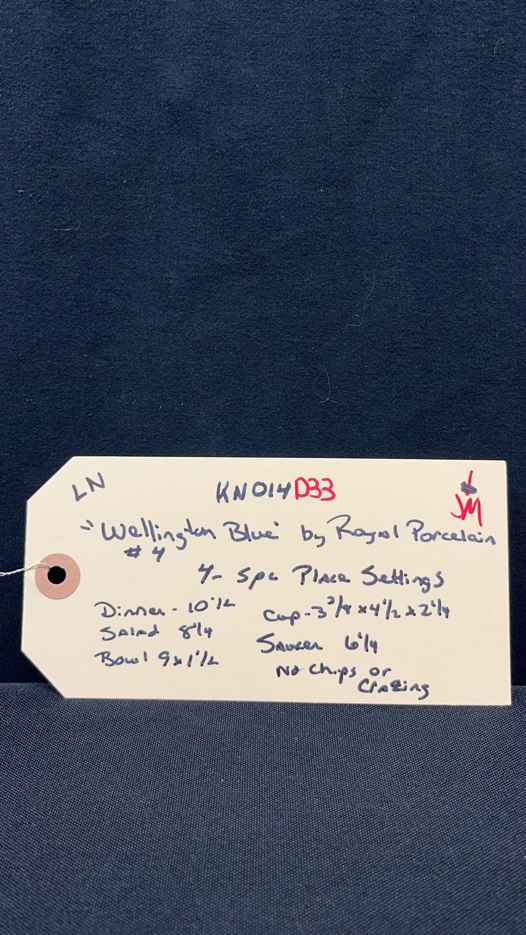 LN
KN014 D33
JM
"Wellington Blue" by Royal Porcelain
#4
4- 5pc Place Settings
Dinner - 10 1/2
Salad 8 1/4
Bowl 9x1 1/2
Cup - 3 3/4 x 4 1/2 x 2 1/4
Saucer 6 1/4
No Chips or
Crazing